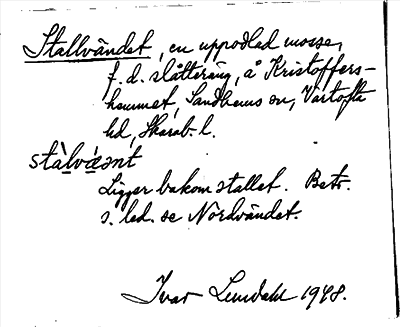 Stallvändet, en uppodlad mosse,
f. d. slåttering, å Kristoffers-
hemmet, Sandhems sn, Vartofta
hd, Skarab. l.
stàlvǽənt
Ligger bakom stallet. Betr.
s. led. se Nordvändet.
Ivar Lundahl 1948.